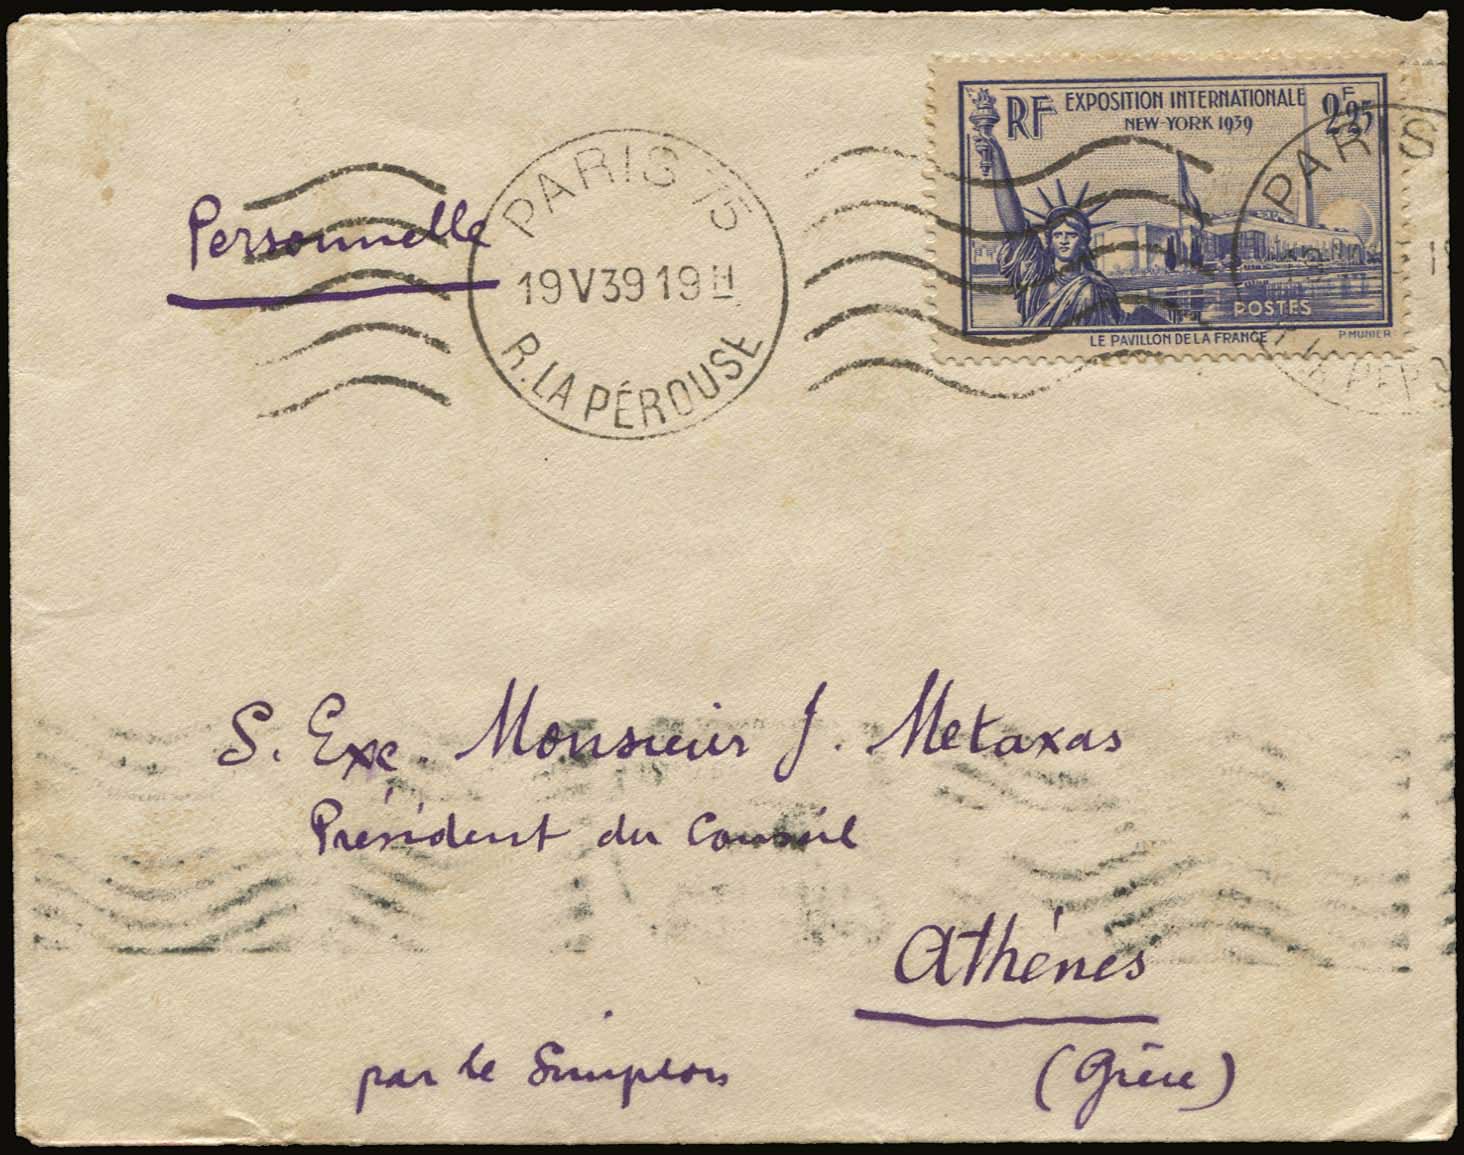 EXPOSITION INTERNATIONALE
NEW-YORK 1939
RF
2F25
POSTES
LE PAVILLON DE LA FRANCE
P. MUNIER
PARIS 75
19 V 39 19 H
R. LA PÉROUSE
PARIS
Personnelle
S. Exc. Monsieur J. Metaxas
Président du Conseil
Athènes
(Grèce)
par le Simplon